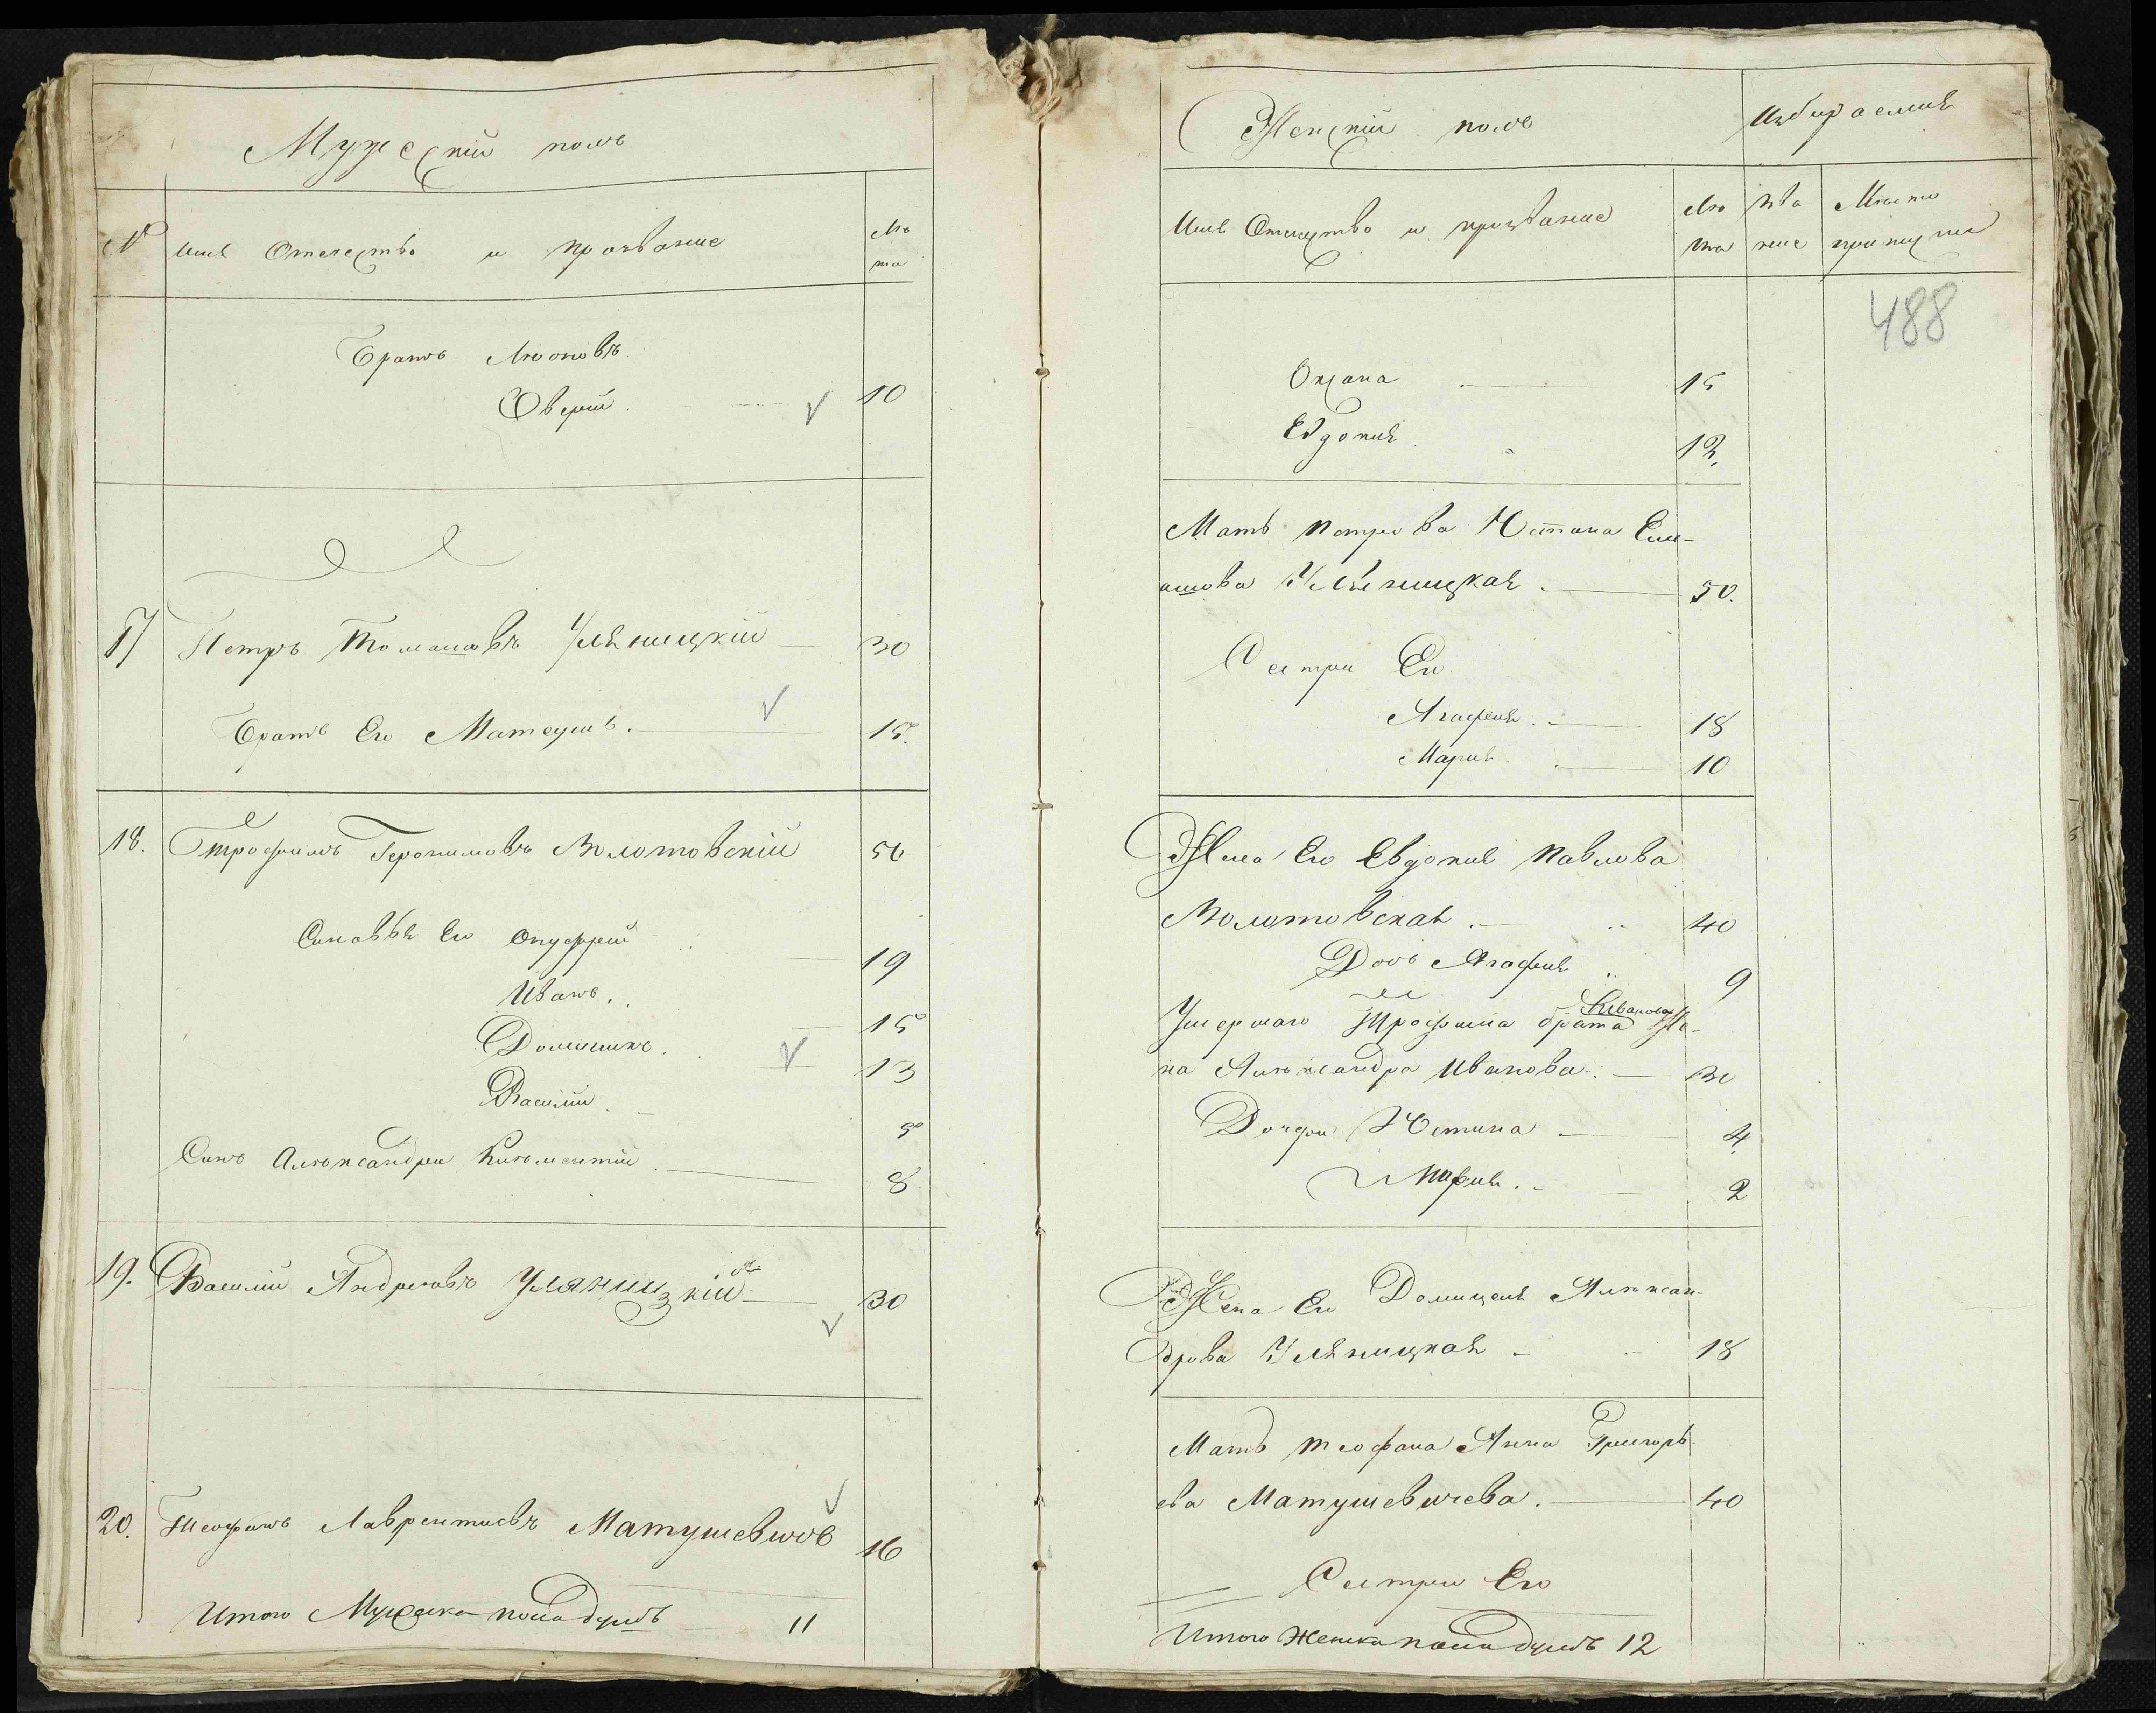 Мужескій полъ
№ Имя Отечество и прозвание Лѣта
Братъ Леоновъ
Оверій 10
17 Петръ Томашовъ Уляницкій 30
Братъ Его Матеушъ. 15.
18. Трофимъ Геронимовъ Волотовскій 56
Сыновья Его Онуфрей 19
Иванъ. 15
Доминикъ. 13
Василій
Сынъ Александры Климентій 8
19. Василій Андреевъ Уляницкій 30
20. Теофанъ Лаврентиевъ Матушевичъ 16
Итого Мужеска пола душъ 11
Женскій полъ
Имя Отечество и прозвание Лѣта Место
488
Оксана 15
Евдокия 12.
Мать Петрова Устина
Уляницкая 50.
Сестри Его
Агафия. 18
Мария 10
Жена Его Евдокия Павлова
Волотовская 40
Дочь Агафия 9
Иванова
Умершаго Трофима брата Же-
на Александра Иванова 30
Дочери Устина 4
Мария. 2
Жена Его Домицеля Алексан-
дрова Уляницкая 18
Мать Теофана Анна Григорь-
ева Матушевичева. 40
Сестри Его
Итого Женска пола душъ 12